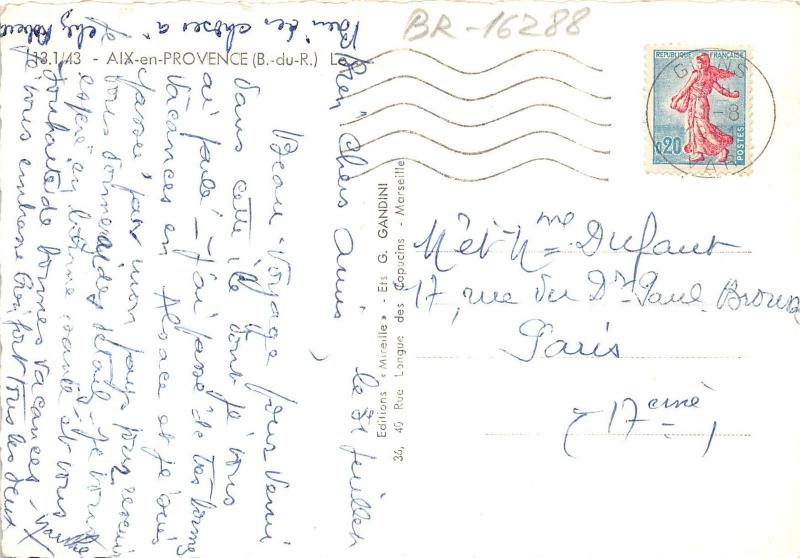 BR-16288
13.1/43 - AIX-en-PROVENCE (B.-du-R.)
REPUBLIQUE FRANÇAISE
0,20
POSTES
Editions « Mireille » - Ets G. GANDINI
36, 40 Rue Longue des Capucins - Marseille
le 31 juillet
Bien chers amis,
Beau voyage pour venir
dans cette ile dont je vous
ai parlé - J'ai passé de très bonnes
vacances en Alsace et je suis
passée par mon pays pour revenir
Je vous donnerai des détails - Je vous
espère en bonne santé et vous
souhaite de bonnes vacances -
Je vous embrasse bien fort tous les deux
Marthe
Bien des choses à
chez
M et Mme Dufaut
17, rue du Dr Paul Brousse
Paris
(17ème)